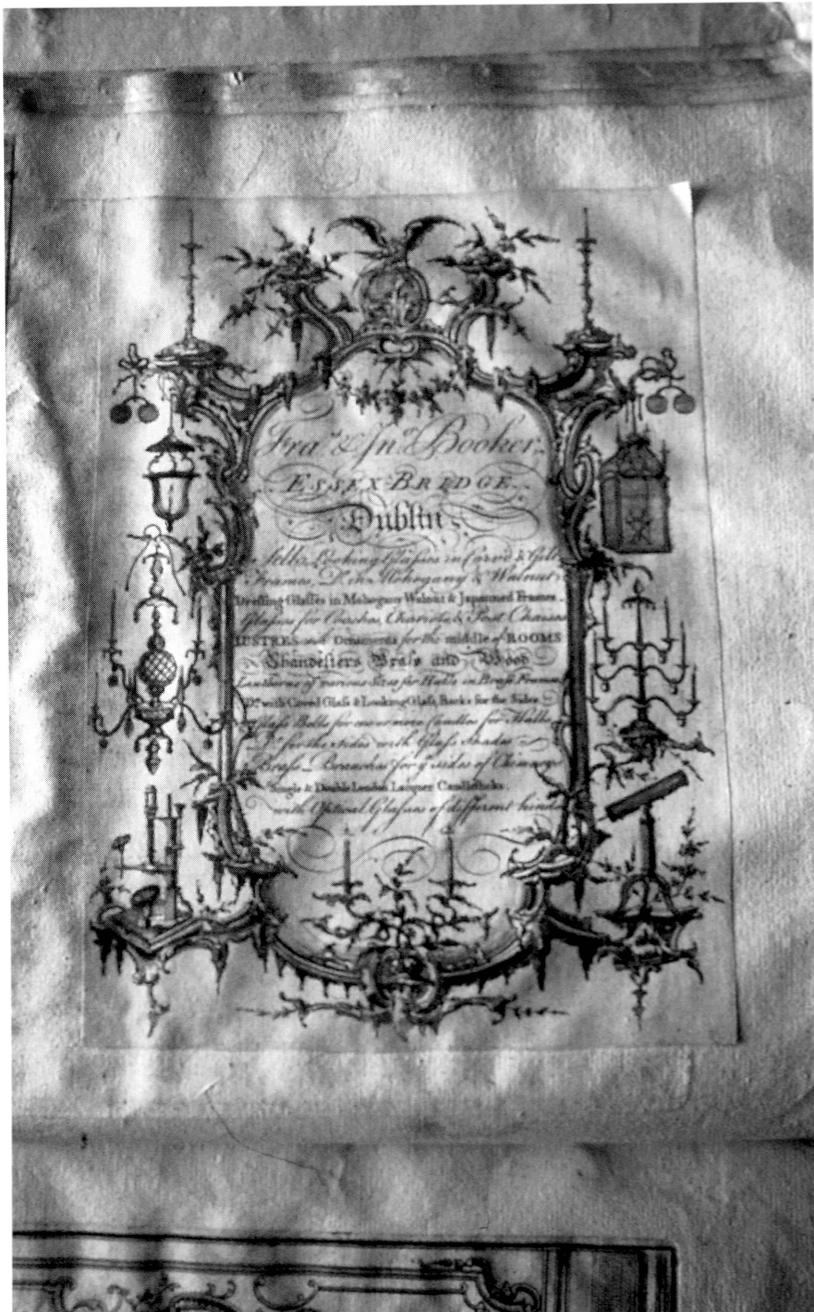 Fraˢ & Jnº Booker,
ESSEX-BRIDGE,
Dublin,
Sells Looking Glaſses in Carved & Gilt
Frames, Dº in Mahogany & Walnut
Dreſsing Glaſses in Mahogany Walnut & Japanned Frames.
Glaſses for Coaches, Chariots, & Post Chaises
LUSTRES and Ornaments for the middle of ROOMS
Chandeliers Braſs and Wood
Lanthorns of various Sizes for Halls in Braſs Frames
Dº. with Coved Glaſs & Looking Glaſs, Backs for the Sides.
Glaſs Bells for one or more Candles for Halls
Dº for the Sides with Glaſs Shades
Braſs Branches for yᵉ sides of Chimneys
Single & Double London Lacquer Candlesticks.
with Optical Glaſses of different kinds